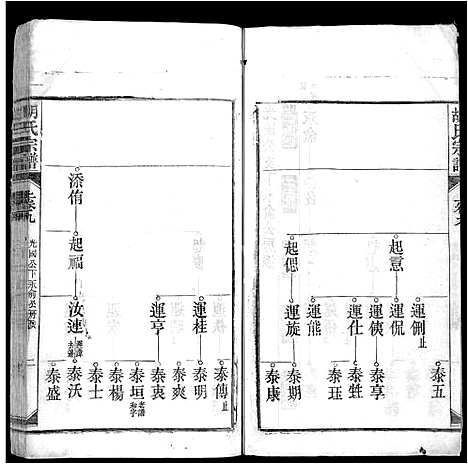 胡氏宗譜
起憲
起偲
運侃
運侃止
運俠
運仕
運熊
運旋
泰五
泰享
泰甡
泰珏
泰期
泰康
胡氏宗譜
卷九
光國公下永俞公房派
二
添侑
起福
運桂
運亨
汝速
泰傳止
泰明
泰爽
泰衷
泰垣
泰楊
泰士
泰沃
泰盛